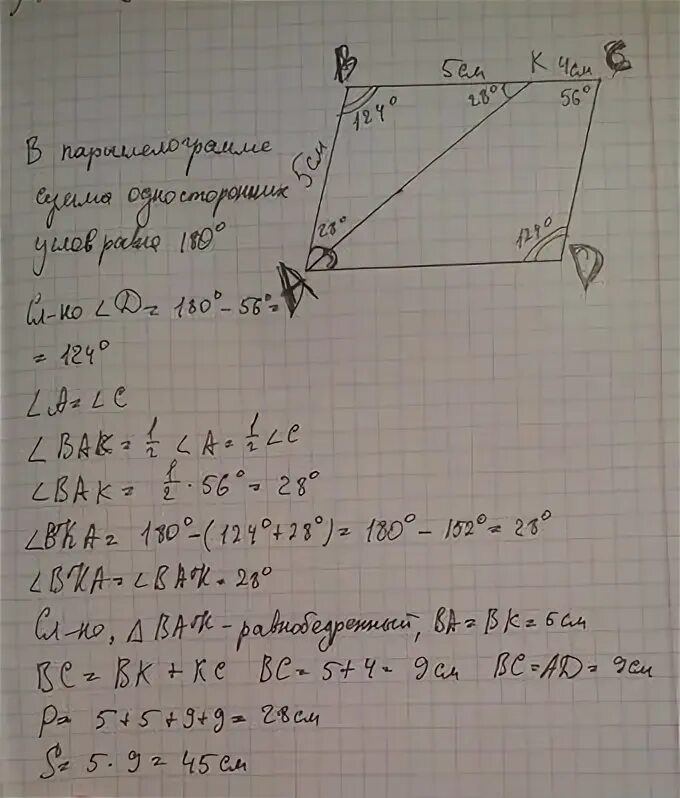 B 5см K 4см C
124° 28° 56°
5см
28° 124°
A D
В параллелограмме
сумма односторонних
углов равна 180°
Сл-но ∠D = 180° - 56° =
= 124°
∠A = ∠C
∠BAK = 1/2 ∠A = 1/2 ∠C
∠BAK = 1/2 · 56° = 28°
∠BKA = 180° - (124° + 28°) = 180° - 152° = 28°
∠BKA = ∠BAK = 28°
Сл-но, △ BAK - равнобедренный, BA = BK = 5см
BC = BK + KC BC = 5 + 4 = 9см BC = AD = 9см
P = 5 + 5 + 9 + 9 = 28см
S = 5 · 9 = 45см